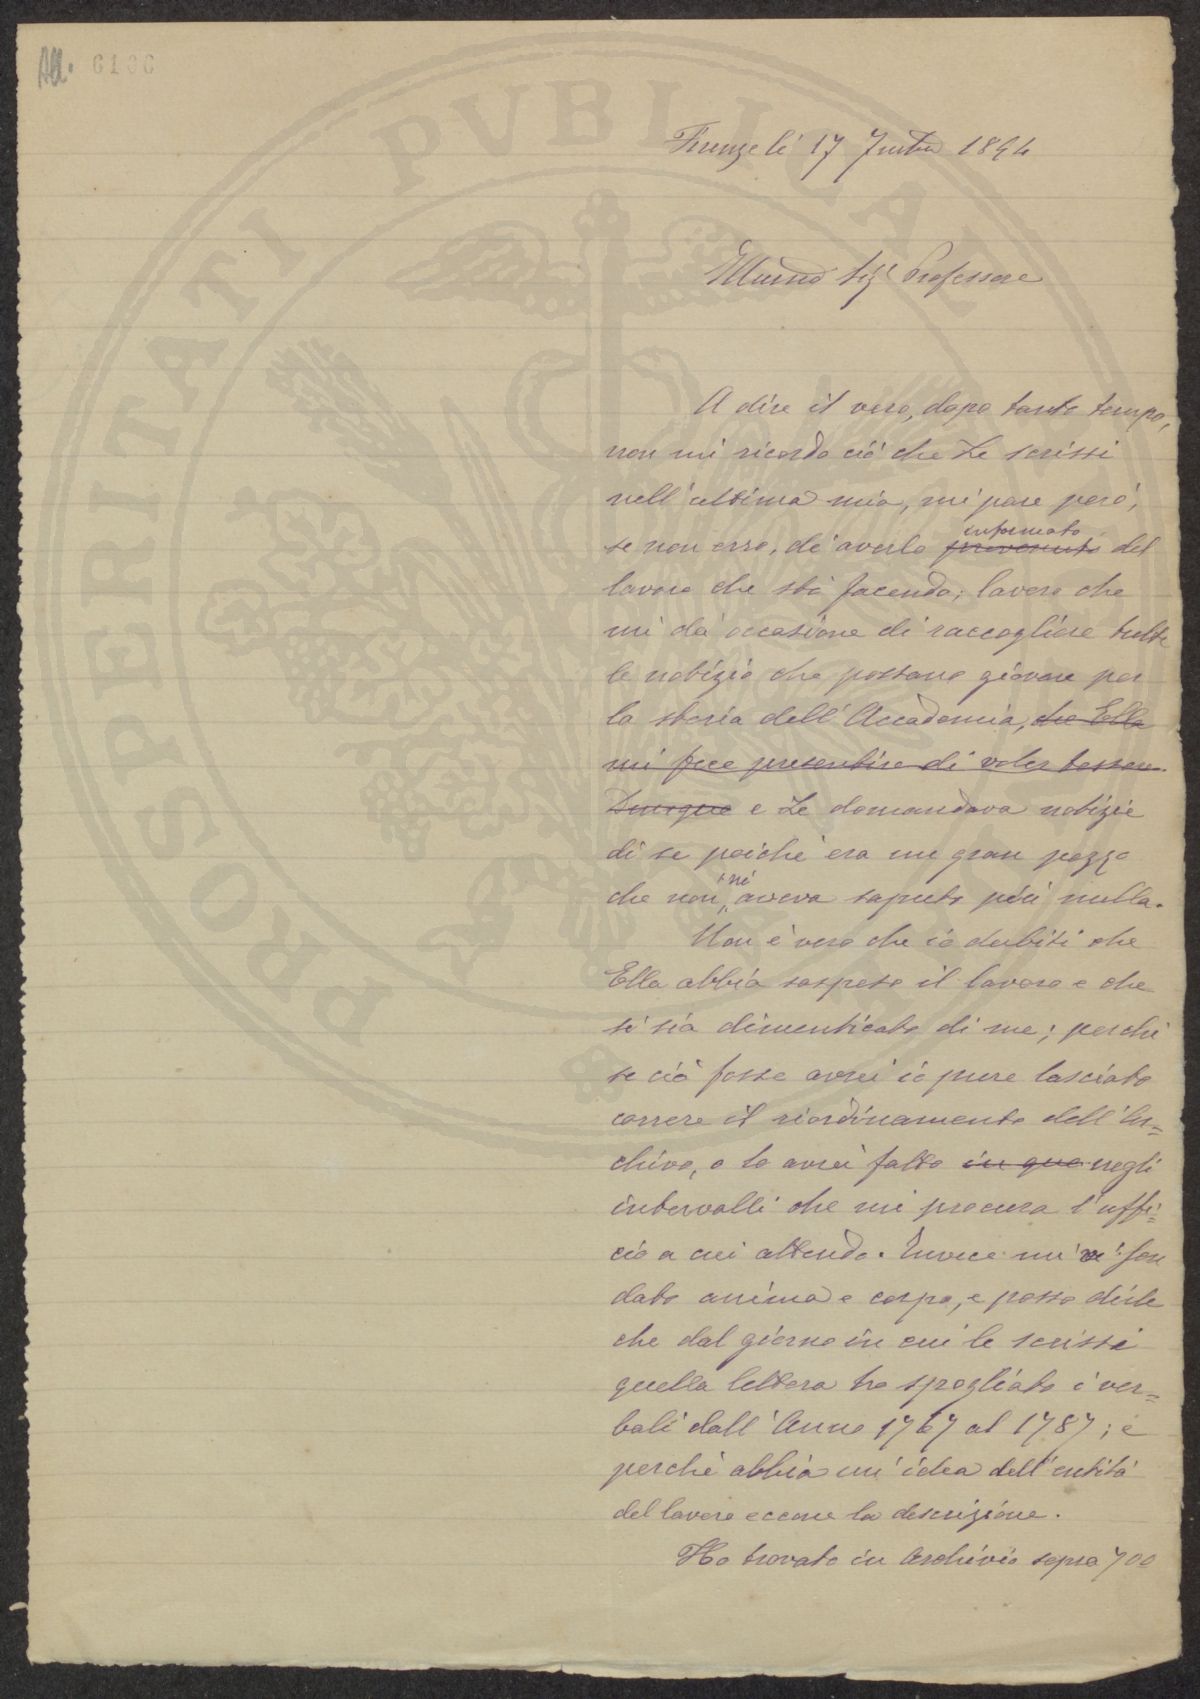 All. 6106
PROSPERITATI PVBLICAE
Firenze li 17 1894
Illmo Sigr Professore
A dire il vero, dopo tanto tempo,
non mi ricordo ciò che Le scrissi
nell'ultima mia, mi pare però,
se non erro, di averlo prevenuto informato del
lavoro che stò facendo; lavoro che
mi dà occasione di raccogliere tutte
le notizie che possano giovare per
la storia dell'Accademia, che Ella
mi fece presentire di voler tessere.
Dunque e Le domandava notizie
di se poichè era un gran pezzo
che non ne aveva saputo più nulla.
Non è vero che io dubiti che
Ella abbia sospeso il lavoro e che
si sia dimenticato di me; perchè
se ciò fosse avrei io pure lasciato
correre il riordinamento dell'Ar=
chivio, o lo avrei fatto in que negli
intervalli che mi procura l'uffi=
cio a cui attendo. Invece mi vi son
dato anima e corpo, e posso dirle
che dal giorno in cui le scrissi
quella lettera ho spogliato i ver=
bali dall'Anno 1767 al 1787; e
perchè abbia un'idea dell'entità
del lavoro eccone la descrizione.
Ho trovato in Archivio sopra 700